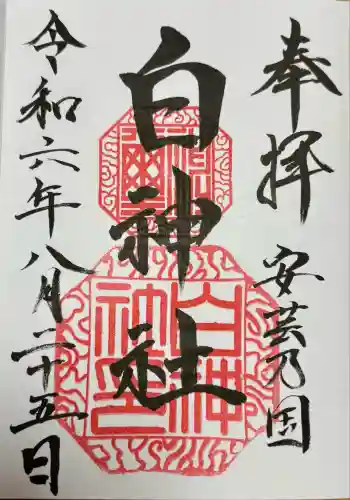 奉拝
安芸乃国
白神社
令和六年八月二十五日
白神
神宮